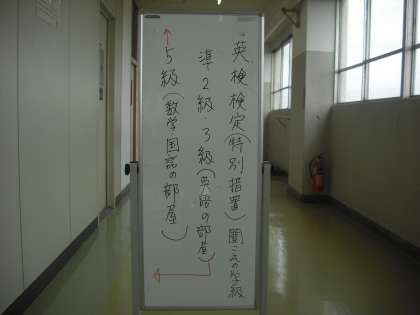 英検検定(特別措置) 聞こえの学級
準2級・3級(英語の部屋)
5級(数学・国語の部屋)